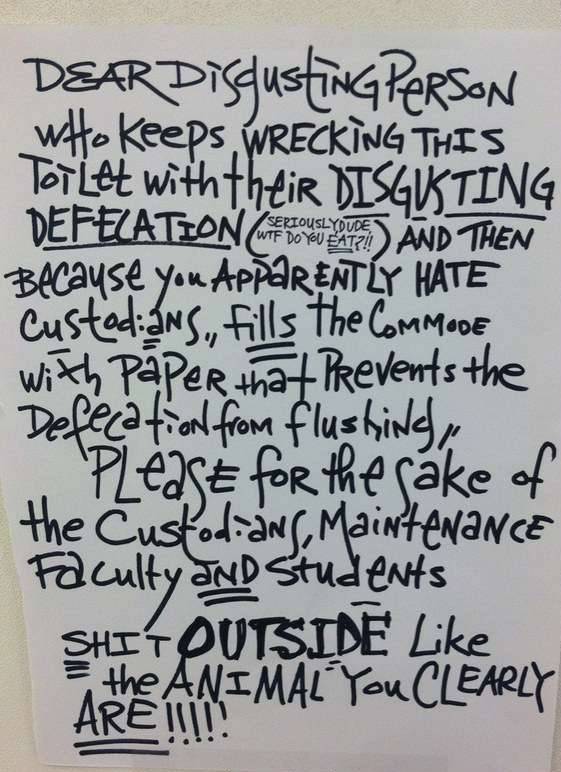 DEAR DisgustiNG PERSON
wHo Keeps WRECKiNG THIS
ToiLet with their DISGUSTING
DEFECATION (SERIOUSLY DUDE, WTF DO YOU EAT?!!) AND THEN
Because you APPaRENTLY HATE
Custodians,, fills the COMMODE
with PaPER that Prevents the
Defecation from flushing,,
PLeaSE foR the sake of
the Custodians, MaintENANCE
Faculty aND StudeNts
SHIT OUTSIDE Like
the ANIMAL You CLEARLY
ARE!!!!!